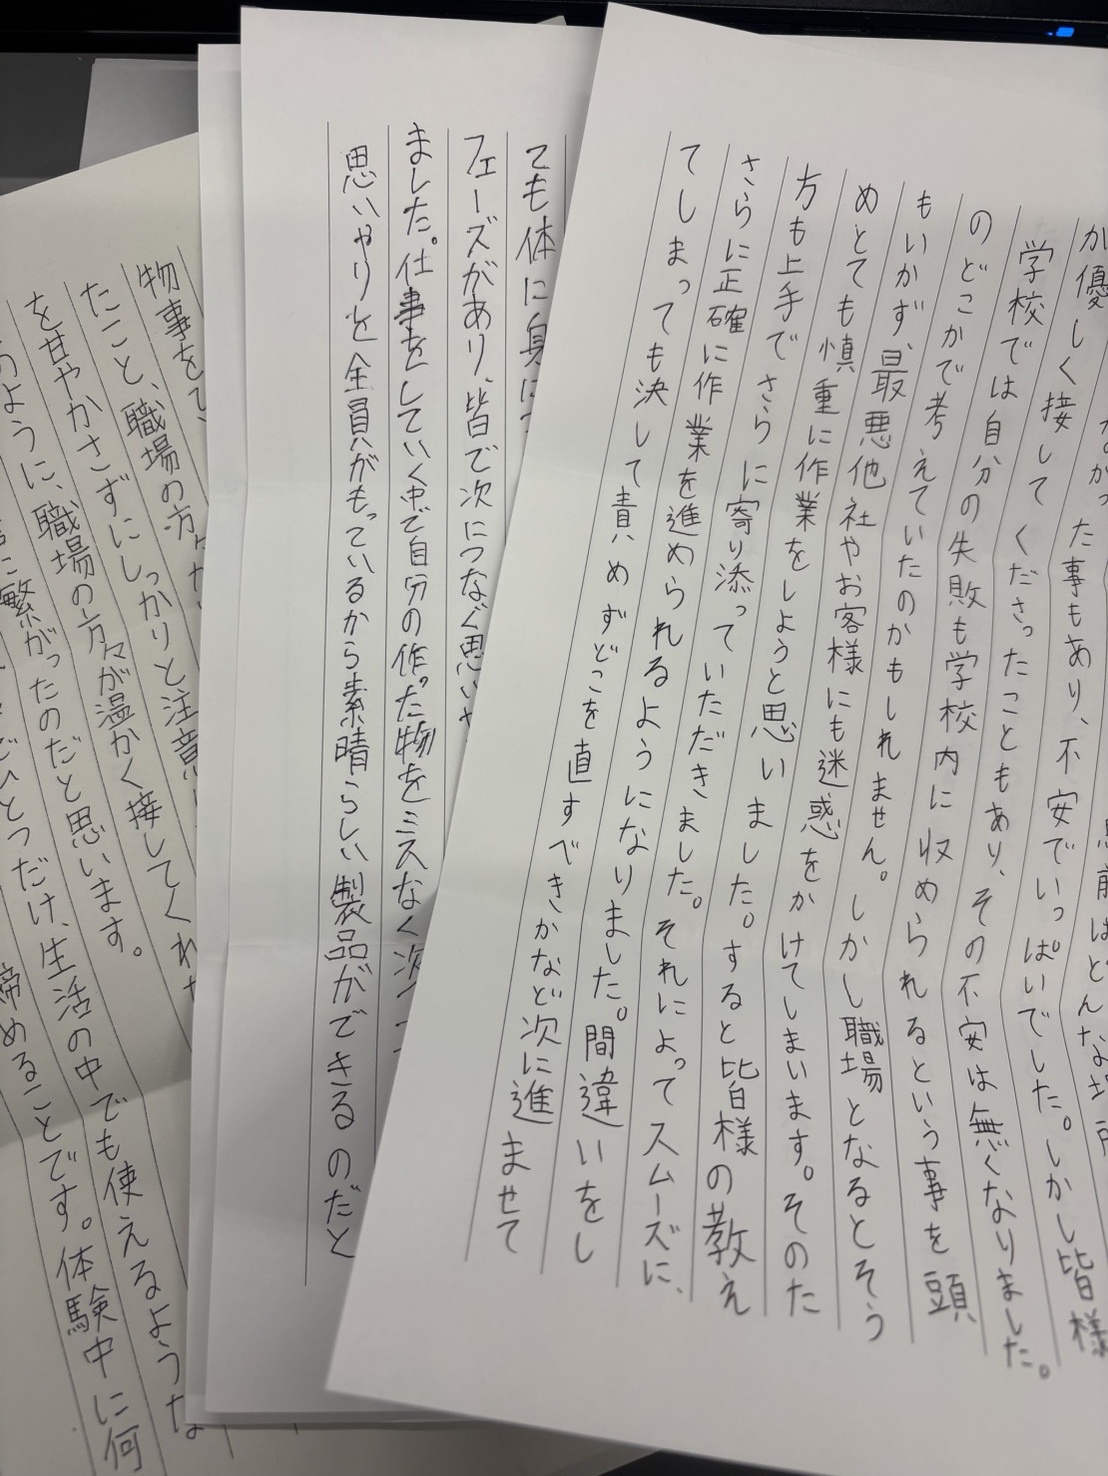 か優しく接してくださったこともあり、その不安は無くなりました。
学校では自分の失敗も学校内に収められるという事を頭
のどこかで考えていたのかもしれません。しかし職場となるとそう
もいかず、最悪他社やお客様にも迷惑をかけてしまいます。そのた
めとても慎重に作業をしようと思いました。すると皆様の教え
方も上手でさらに寄り添っていただきました。それによってスムーズに、
さらに正確に作業を進められるようになりました。間違いをし
てしまっても決して責めずどこを直すべきかなど次に進ませて
ても体に身に
フェーズがあり、皆で次につなぐ思いや
ました。仕事をしていく中で自分の作った物をミスなく次
思いやりを全員がもっているから素晴らしい製品ができるのだと
物事を
たこと、職場の方々が温かく接してくれ
を甘やかさずにしっかりと注意
のように、職場の方々が
に繋がったのだと思います。
ひとつだけ、生活の中でも使えるような
諦めることです。体験中に何